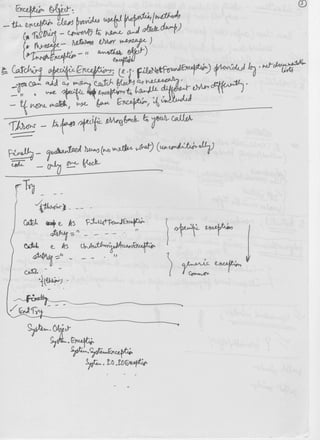 ②
Exception Object:
- the exception class provides useful properties/methods
(a ToString - converts to name and state dump)
(a Message - returns error message)
(a InnerException - " another object)
exception
Catching specific Exceptions: (e.g. FileNotFoundException) provided by .net
- you can add as many catch blocks as necessary.
- " " use specific exceptions to handle different errors differently.
- If none match, use Exception, if included
Throw - to pass specific error back to your caller
Finally - guaranteed runs (no matter what) (unconditionally)
code - only one block
Try
- - -
(throw) - - -
Catch e As FileNotFoundException
string = " - - - -
Catch e As UnAuthorizedAccessException
string = " - - -
specific exception
generic exception
common
Catch
(throw) - - -
Finally
End Try
System.Object
System.Exception
System.SystemException
System.IO.IOException